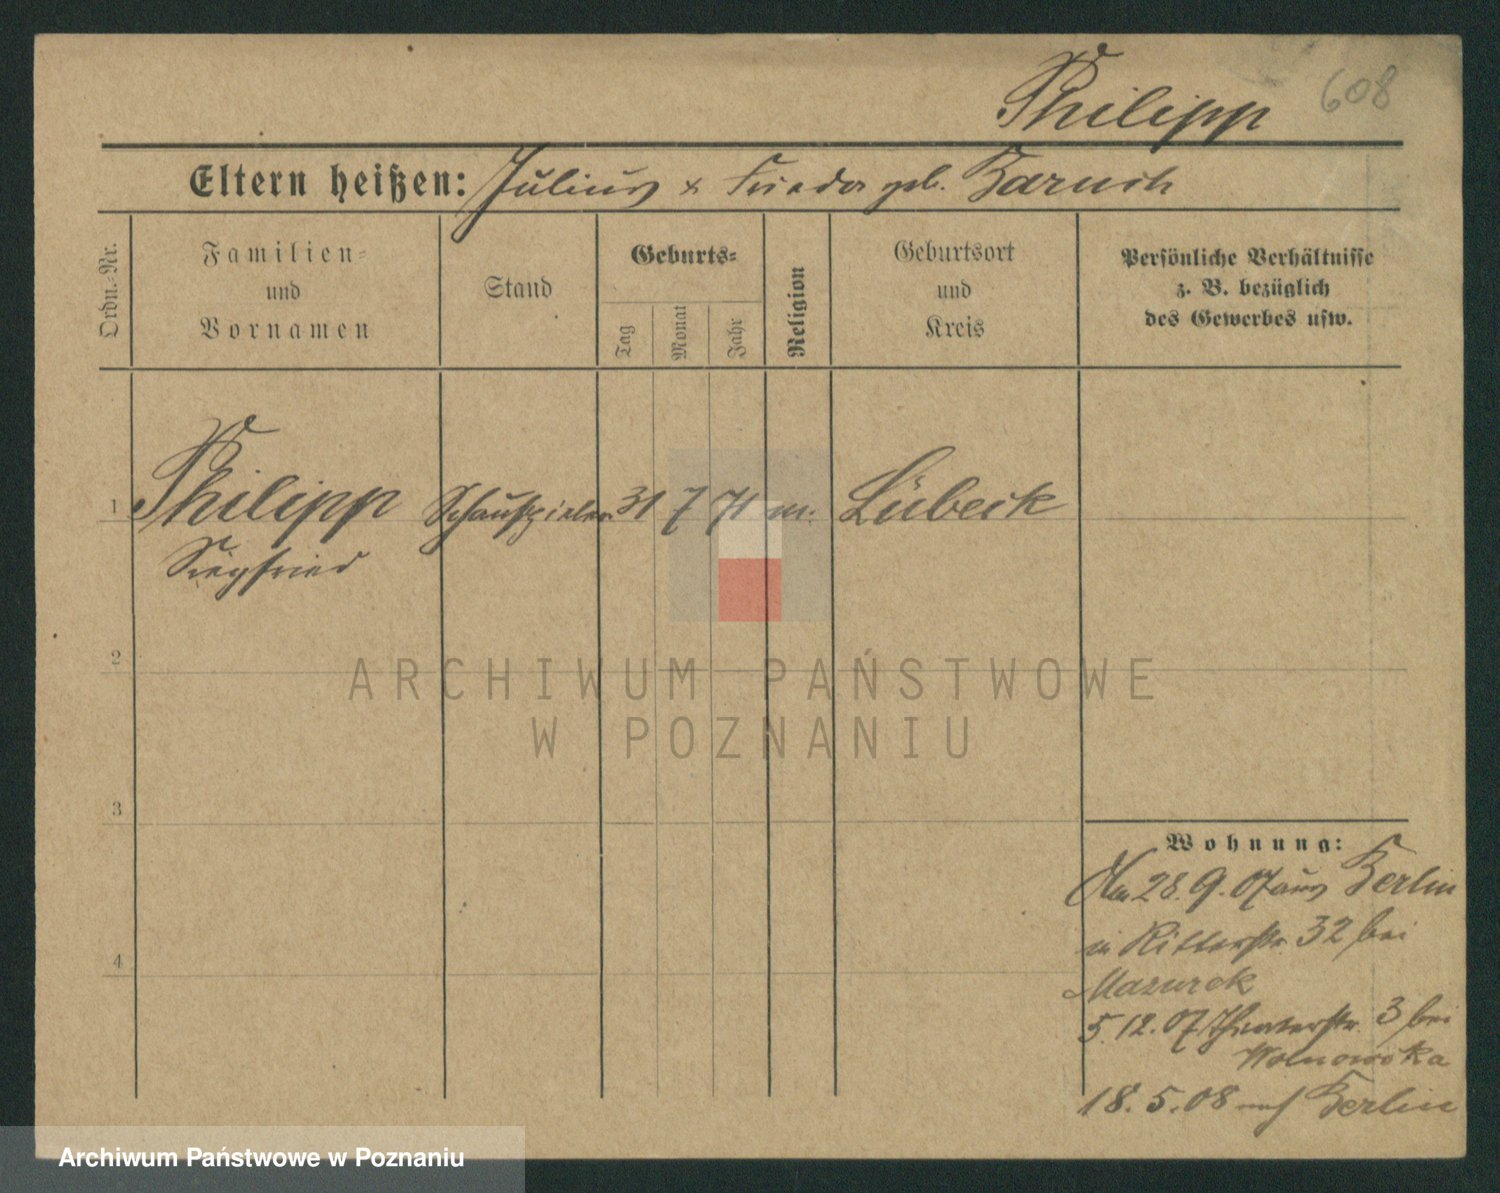 Philipp 608
Eltern heißen: Julius & Frieda geb. Baruch
Ordn.-Nr.
Familien-
und
Vornamen
Stand
Geburts-
Tag
Monat
Jahr
Religion
Geburtsort
und
Kreis
Persönliche Verhältnisse
z. B. bezüglich
des Gewerbes usw.
1 Philipp Schauspieler 31 7 71 m. Lübeck
Siegfried
2
3
4
Wohnung:
28.9.07 aus Berlin
in Ritterstr. 32 bei
Mazurek
5.12.07 Theaterstr. 3 bei
18.5.08 nach Berlin
ARCHIWUM PAŃSTWOWE
W POZNANIU
Archiwum Państwowe w Poznaniu